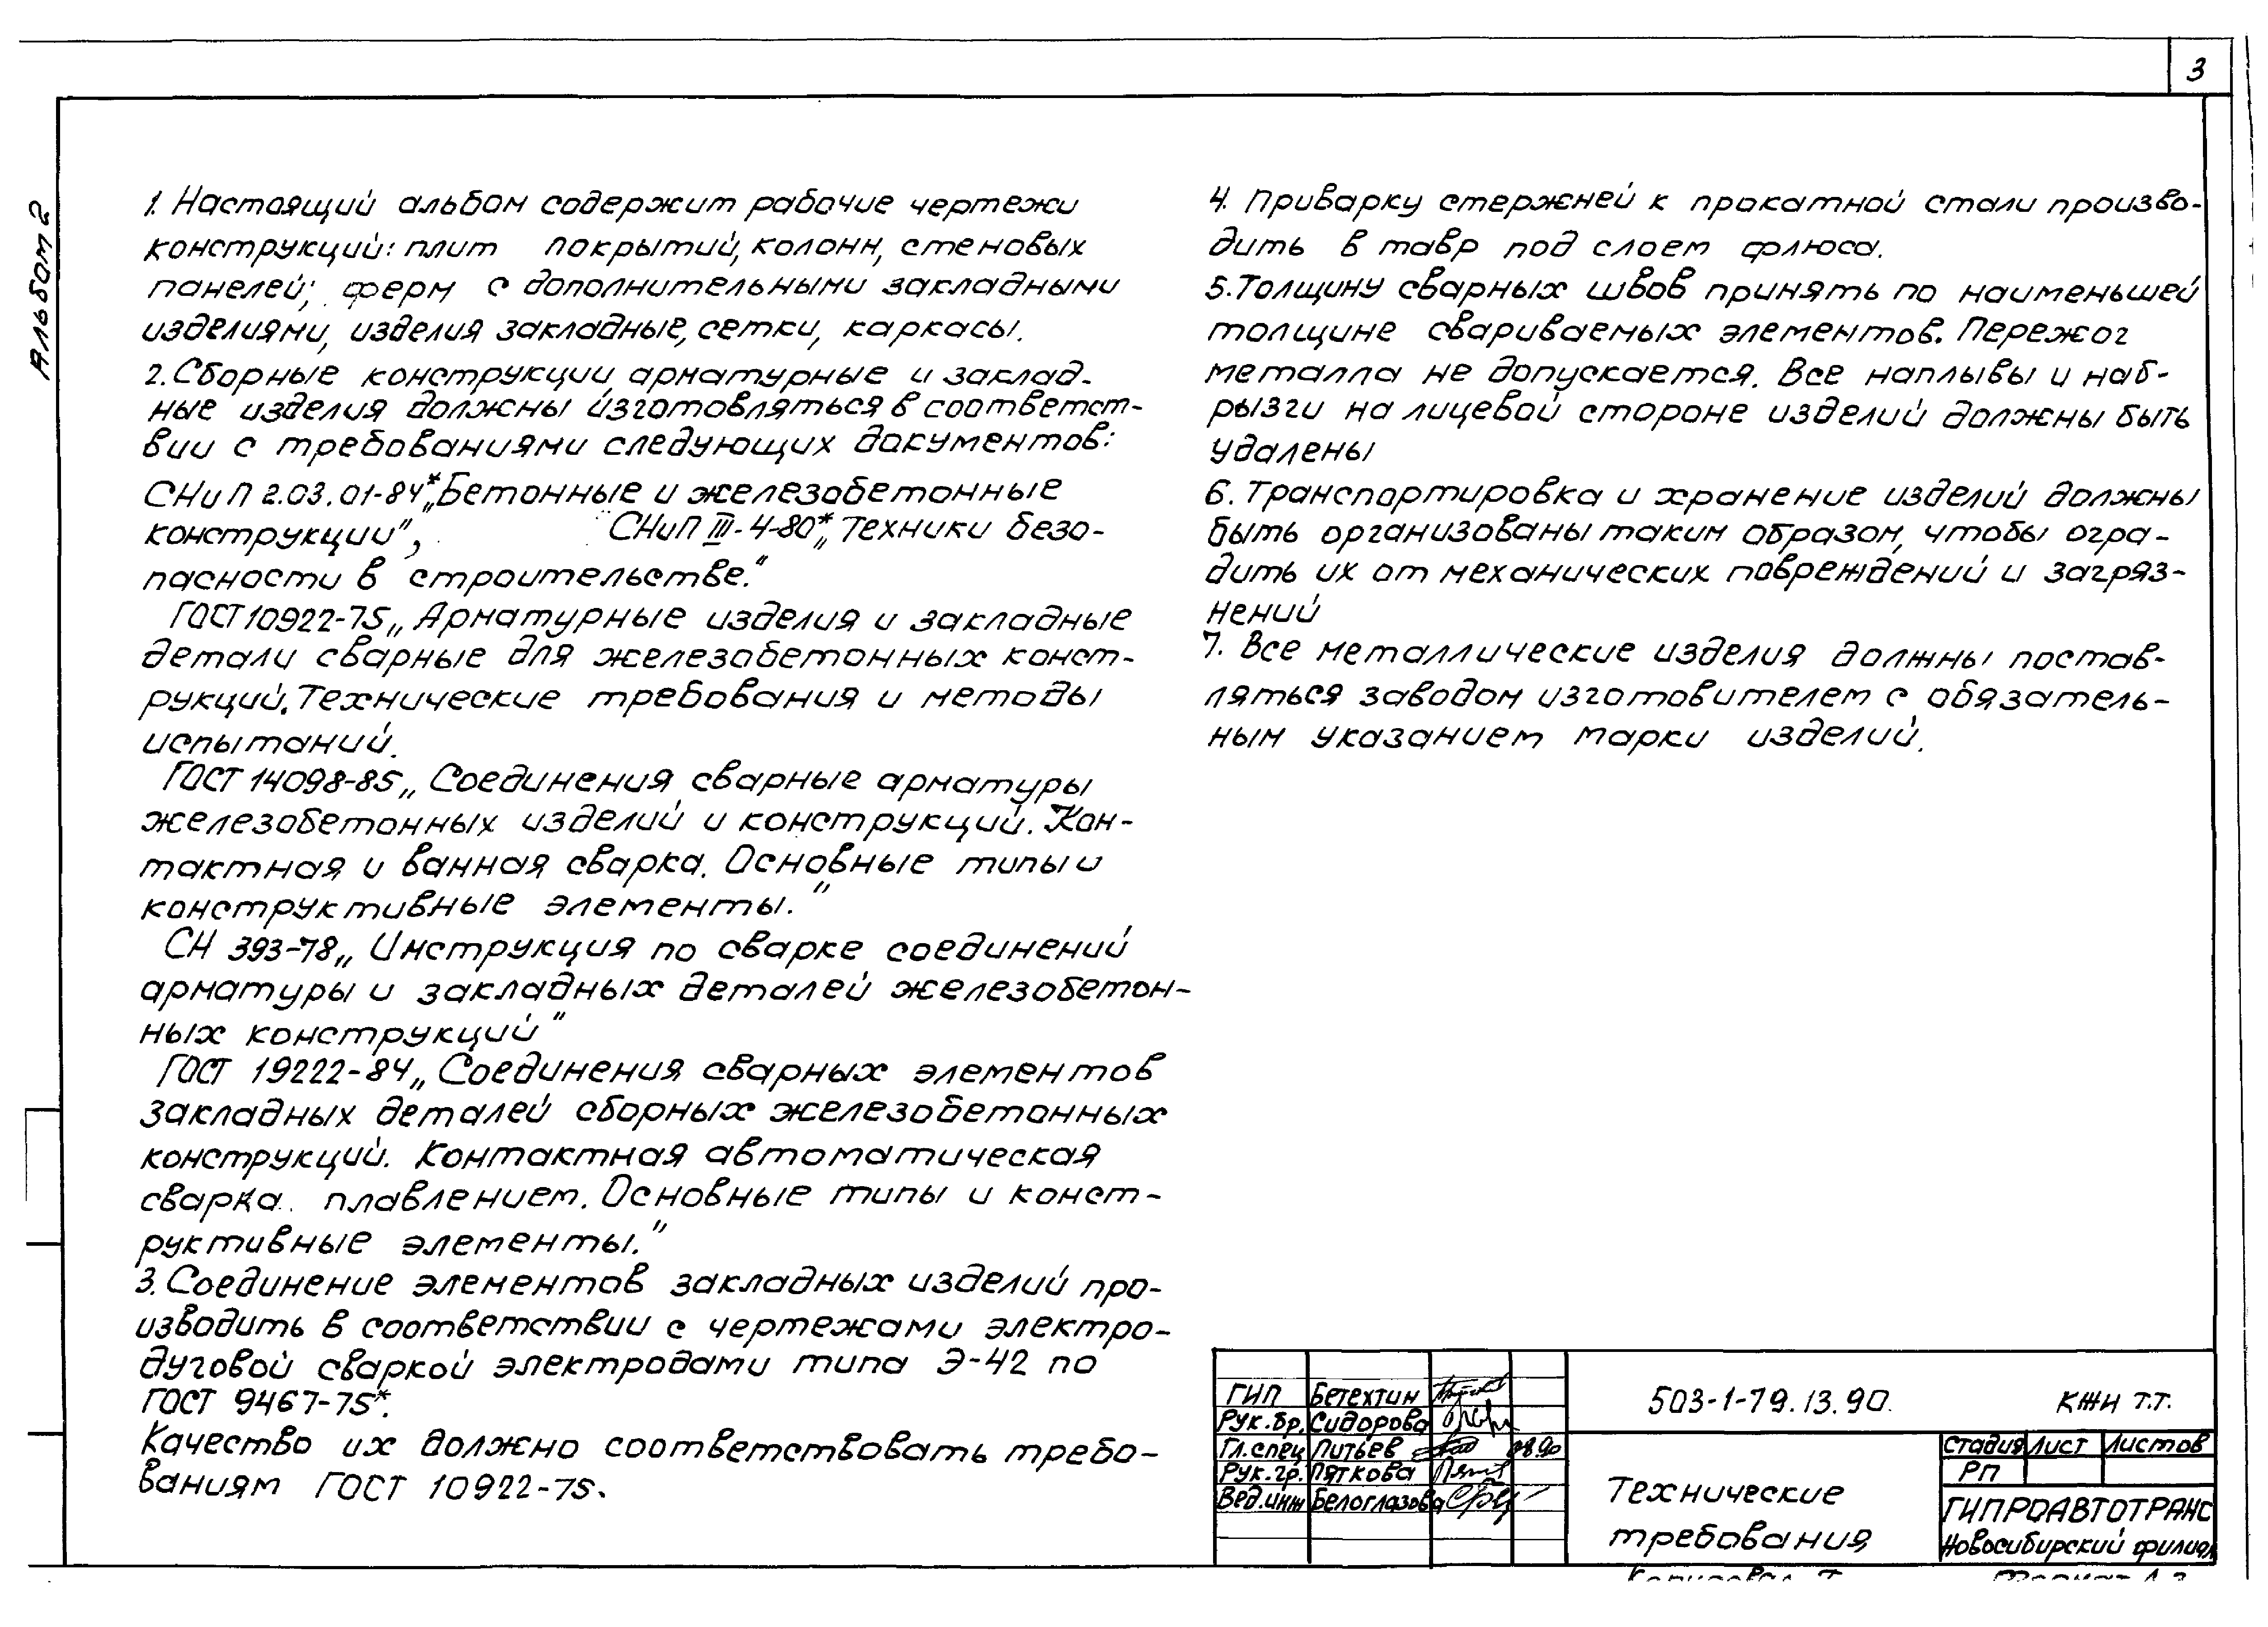 3
Альбом 2
1. Настоящий альбом содержит рабочие чертежи
конструкций: плит покрытий, колонн, стеновых
панелей; ферм с дополнительными закладными
изделиями, изделия закладные, сетки, каркасы.
2. Сборные конструкции арматурные и заклад-
ные изделия должны изготовляться в соответст-
вии с требованиями следующих документов:
СНиП 2.03.01-84* „Бетонные и железобетонные
конструкции", СНиП III-4-80* „Техники безо-
пасности в строительстве."
ГОСТ 10922-75 „Арматурные изделия и закладные
детали сварные для железобетонных конст-
рукций. Технические требования и методы
испытаний.
ГОСТ 14098-85 „Соединения сварные арматуры
железобетонных изделий и конструкций. Кон-
тактная и ванная сварка. Основные типы и
конструктивные элементы."
СН 393-78 „Инструкция по сварке соединений
арматуры и закладных деталей железобетон-
ных конструкций"
ГОСТ 19222-84 „Соединения сварных элементов
закладных деталей сборных железобетонных
конструкций. Контактная автоматическая
сварка плавлением. Основные типы и конст-
руктивные элементы."
3. Соединение элементов закладных изделий про-
изводить в соответствии с чертежами электро-
дуговой сваркой электродами типа Э-42 по
ГОСТ 9467-75*.
Качество их должно соответствовать требо-
ваниям ГОСТ 10922-75.
4. Приварку стержней к прокатной стали произво-
дить в тавр под слоем флюса.
5. Толщину сварных швов принять по наименьшей
толщине свариваемых элементов. Пережог
металла не допускается. Все наплывы и наб-
рызги на лицевой стороне изделий должны быть
удалены
6. Транспортировка и хранение изделий должны
быть организованы таким образом, чтобы огра-
дить их от механических повреждений и загряз-
нений
7. Все металлические изделия должны постав-
ляться заводом изготовителем с обязатель-
ным указанием марки изделий.
ГИП Бетехтин
Рук.бр. Сидорова
Гл.спец Питьев 08.90
Рук.гр. Пяткова
Вед.инж Белоглазова
503-1-79.13.90. КЖИ Т.Т.
Технические
требования
Стадия Лист Листов
РП
ГИПРОАВТОТРАНС
Новосибирский филиал